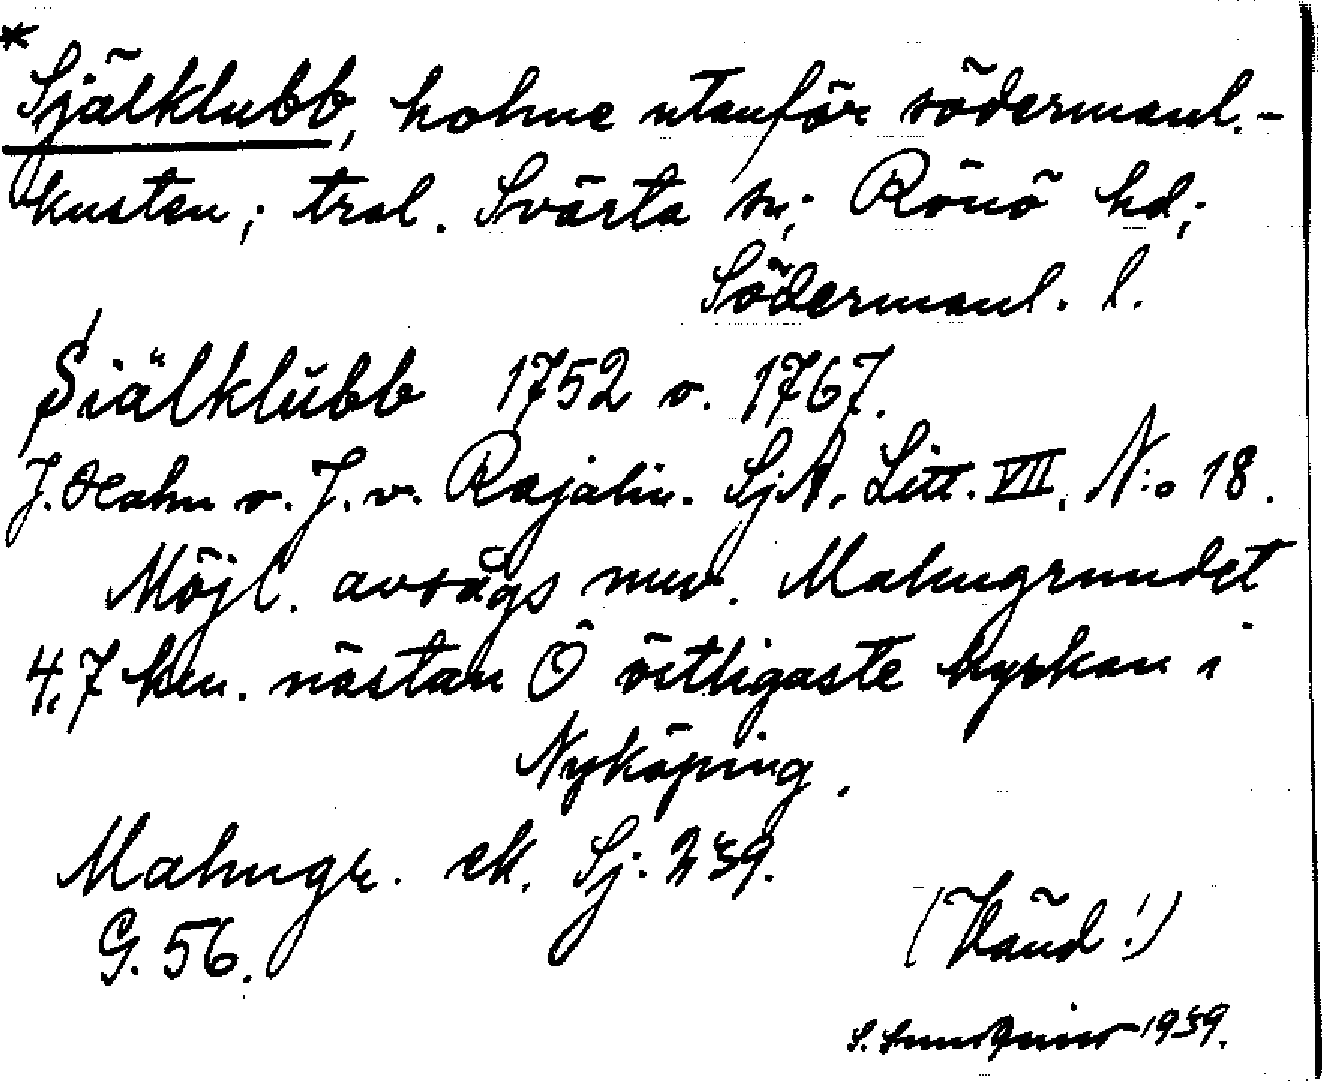 *
Själklubb, holme utanför södermanl.-
kusten; trol. Svärta sn; Rönö hd;
Södermanl. l.
Siälklŭbb 1752 o. 1767.
J. Hahn o. J. v. Rajalin. Sj.A. Litt. VII, N:o 18.
Möjl. avsågs nuv. Malmgrundet
4,7 km. nästan Ö östligaste kyrkan i
Nyköping.
Malmgr. ek. Sj. 239.
G. 56.
(Vänd!)
1939.